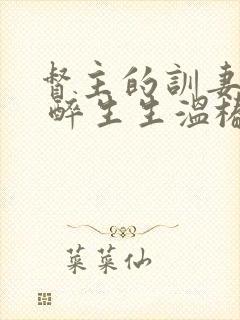 督主的訓妻
醉生生溫椿
菜菜仙